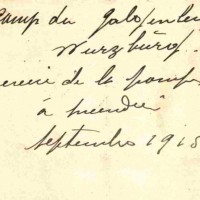 Camp du Galgenber
Wurzburg
de la pompe
à incendie
Septembre 1915